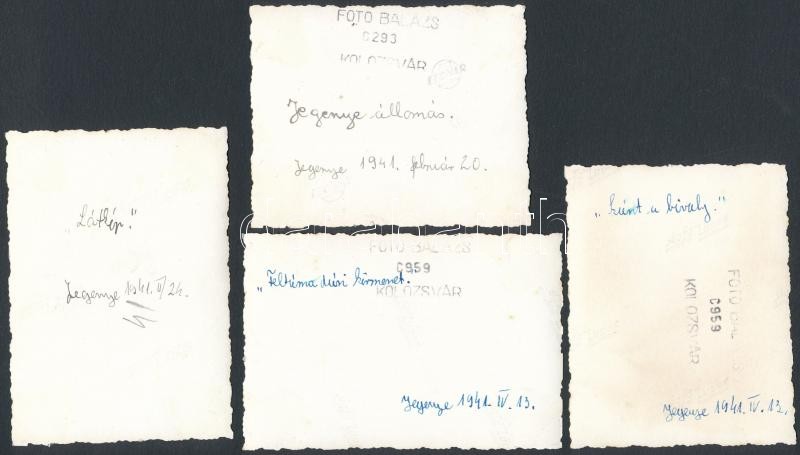 FOTO BALÁZS
C293
KOLOZSVÁR
Jegenye állomás.
Jegenye 1941. február 20.
„Látkép."
Jegenye 1941. II/24.
FOTO BALÁZS
C959
KOLOZSVÁR
„Feltámadási körmenet.
Jegenye 1941. IV. 13.
„ a bivaly."
FOTO BAL
C959
KOLOZSVÁR
Jegenye 1941. IV. 13.